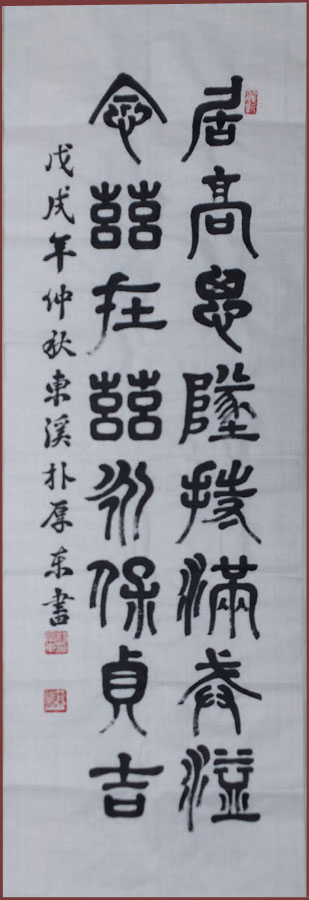 居高思墜持滿戒溢
念茲在茲永保貞吉
戊戌年仲秋東溪朴厚东書